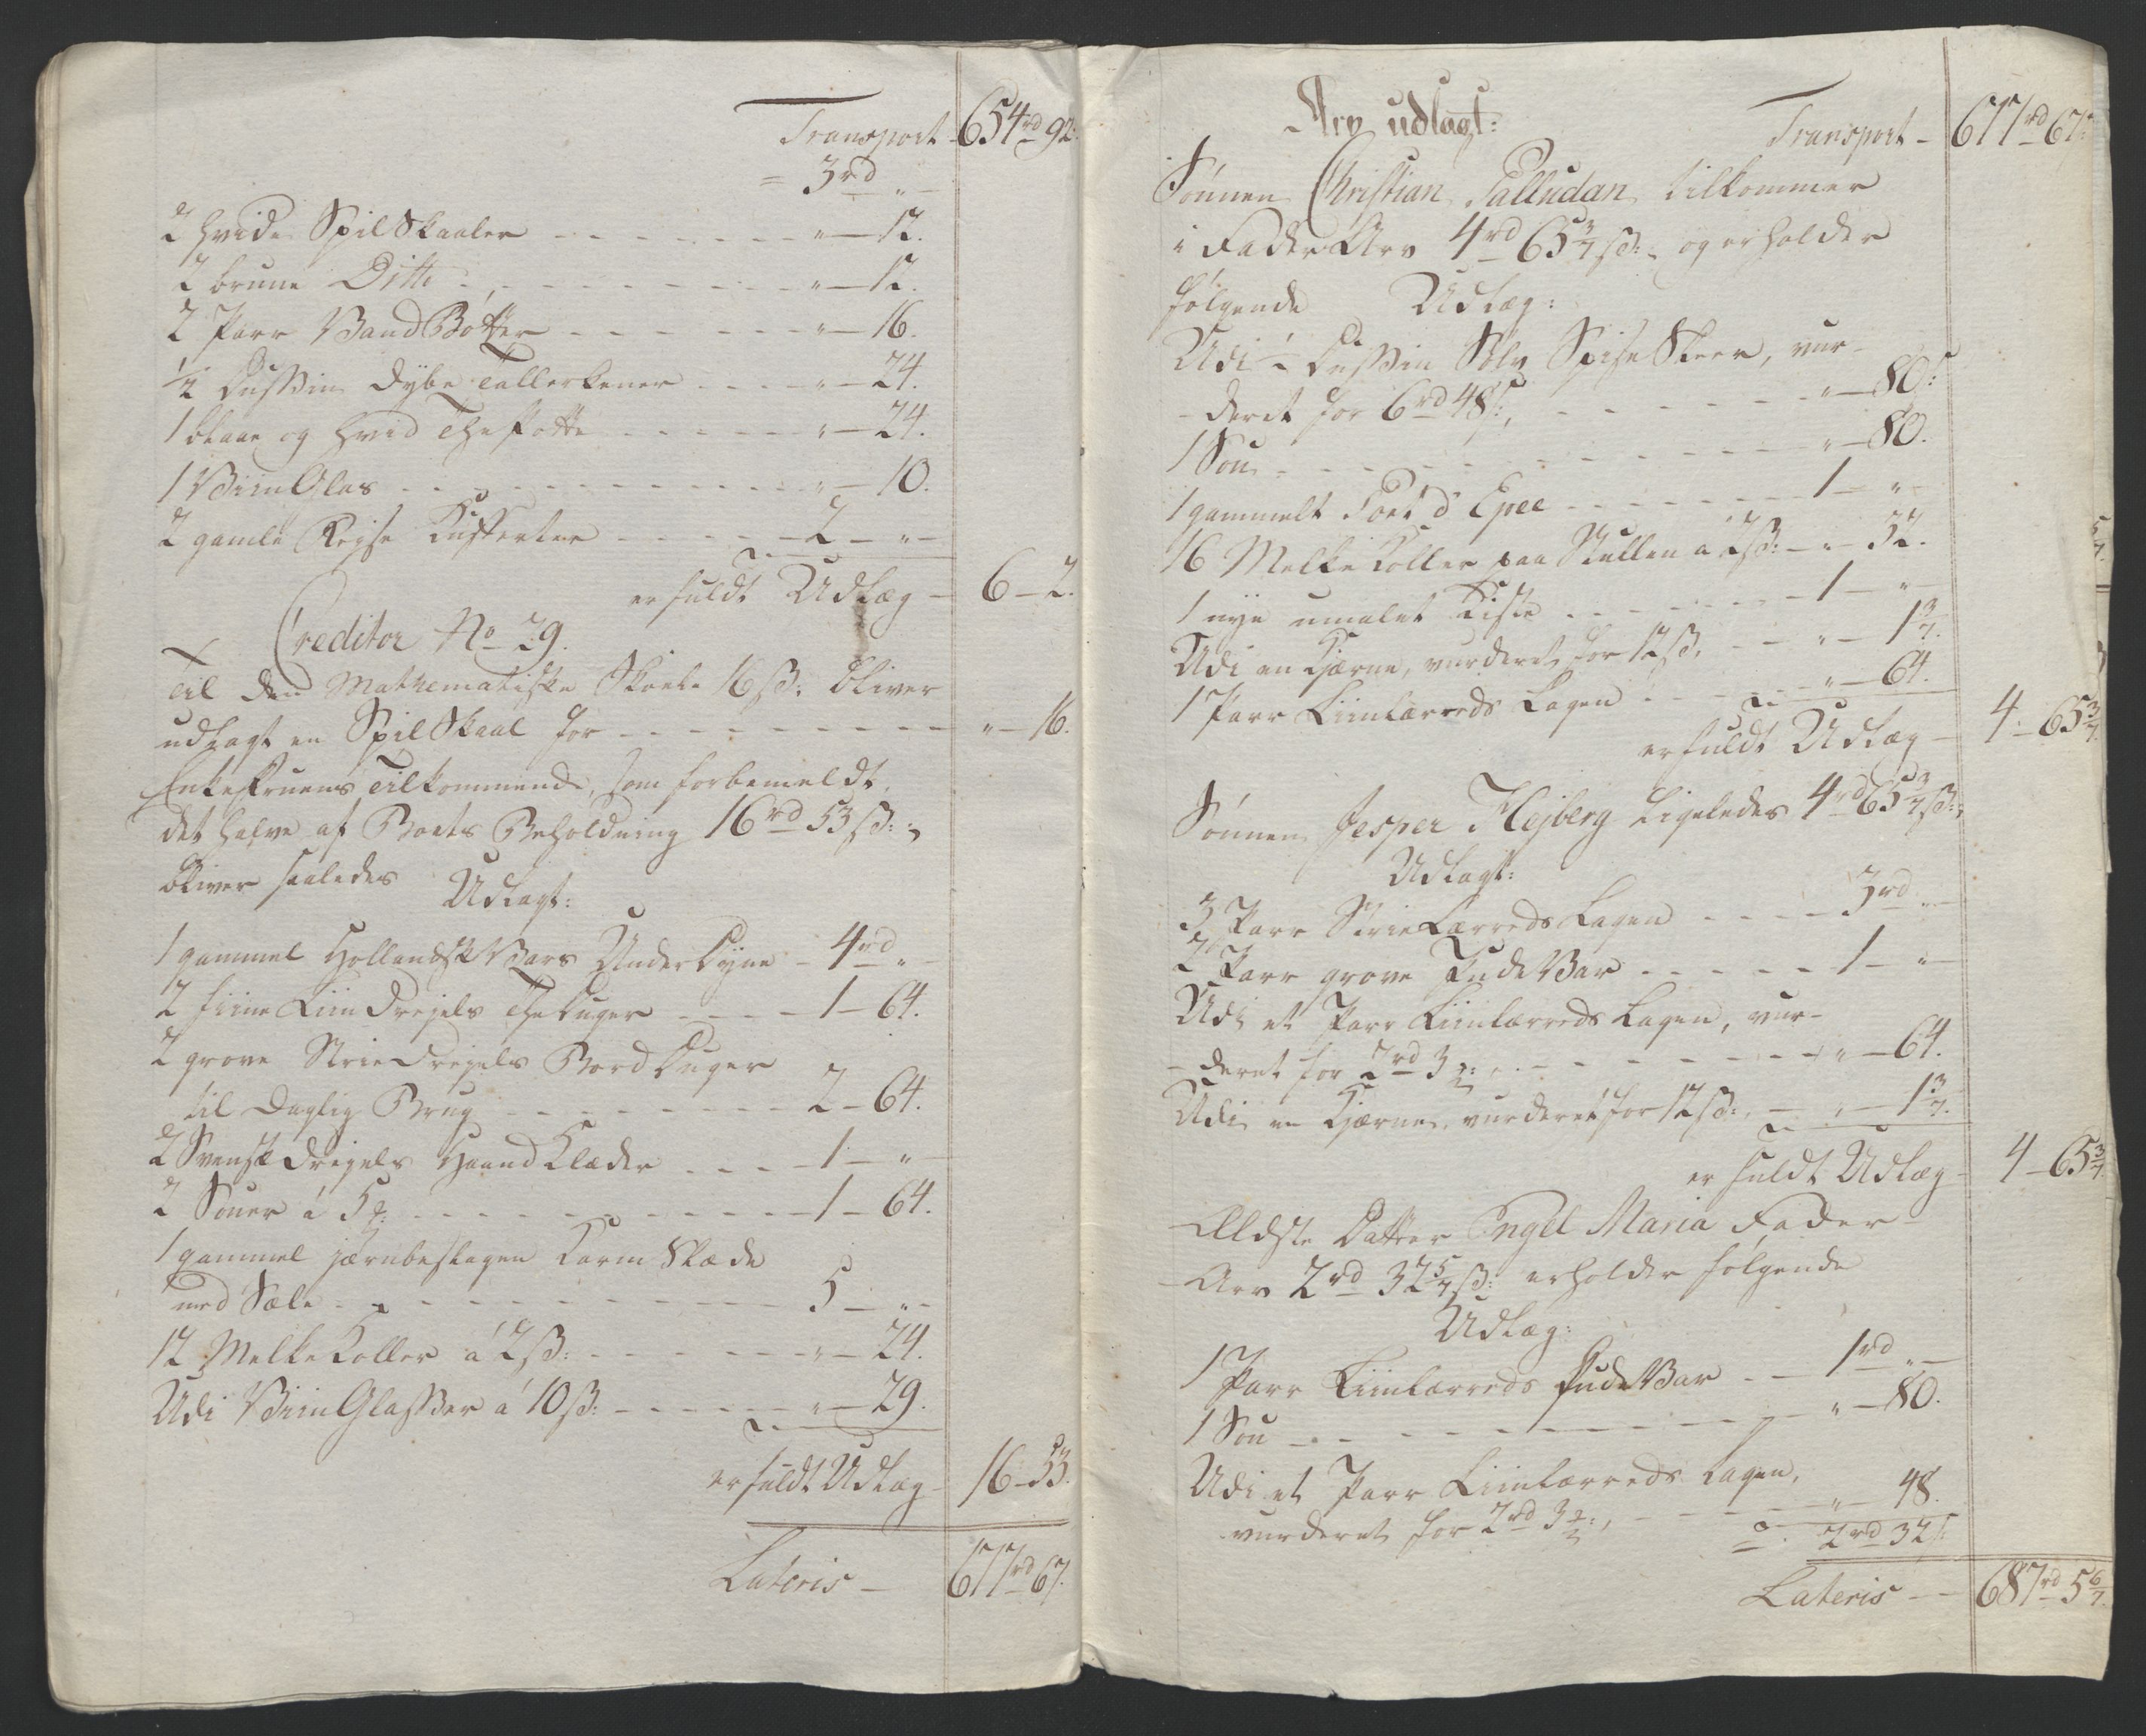 Transport - 654rd 92.
= 3rd „ -
2 hvide Spilskaaler - - - „ - 12.
2 brune Ditto - - - „ - 12.
2 Parr Vand Bøtter - - - „ - 16.
1/2 Dussin dybe Tallerkener - - - „ - 24.
1 blaae og hvid The Potte - - - „ - 24.
1 Viin Glas - - - „ - 10.
2 gamle Rejse Kufferter - - - 2 - „ -
er fuldt Udlæg - 6 - 2.
Creditor No 29.
Til den Mathematiske Skoele 16 ß: bliver
udlagt en Spil Skaal for - - - „ - 16.
Enke Fruens Tilkommende, som forbemeldt,
det halve af Boets Beholdning 16rd 53 ß:
bliver saaledes Udlagt:
1 gammel Hollandsk Vars Under Dyne - 4rd „ -
2 fiine Liin Drejels The Duger - - - 1 - 64.
2 grove Strie Drejels Bord Duger
til daglig Brug - - - 2 - 64.
2 Svensk Drejels Haand Klæder - - - 1 - „ -
2 Souer á 5 ℥: - - - 1 - 64.
1 gammel jærnbeslagen Karm Slæde
med Sæle - - - 5 - „ -
12 Melke Koller á 2 ß: - - - „ - 24.
Udi Viin Glasser á 10 ß: - - - „ - 29.
er fuldt Udlæg - 16 - 53.
Lateris - 677rd 67.
Arv udlagt:
Transport - 677rd 67.
Sønnen Christian Palludan tilkommer
i Fader Arv 4rd 65 3/7 ß: og erholder
følgende Udlæg:
Udi 1 Dussin Sølv Spise Skeer, vur-
-deret for 6rd 48 ß:, - - - „ - 80 ß:
1 Sou - - - „ - 80.
1 gammelt Port d' Epee - - - 1 - „ -
16 Melke Koller paa Stullen á 2 ß: - „ - 32.
1 nye umalet Kiste - - - 1 - „
Udi en Kjærne, vurderet for 12 ß, - - „ - 1 3/7.
1 Parr Liinlærreds Lagen - - - „ - 64.
er fuldt Udlæg - 4 - 65 3/7.
Sønnen Jesper Hejberg ligeledes 4rd 65 3/7 ß:,
Udlagt:
3 Parr Strie Lærreds Lagen - - - 3rd „ -
2 Parr grove Pude Var - - - 1 - „ -
Udi et Parr Liinlærreds Lagen, vur-
-deret for 2rd 3 ℥:, - - - „ - 64.
Udi en Kjærne, vurderet for 12 ß:, - „ - 1 3/7.
er fuldt Udlæg - 4 - 65 3/7.
Ældste Datter Engel Maria Fader-
-Arv 2rd 32 5/7 ß: erholder følgende
Udlæg:
1 Parr Liinlærreds Pude Var - - 1rd „ -
1 Sou - - - „ - 80.
Udi et Parr Liinlærreds Lagen,
vurderet for 2rd 3 ℥:, - - - „ - 48.
= 2rd 32 ß:
Lateris - - 687rd 5 6/7.